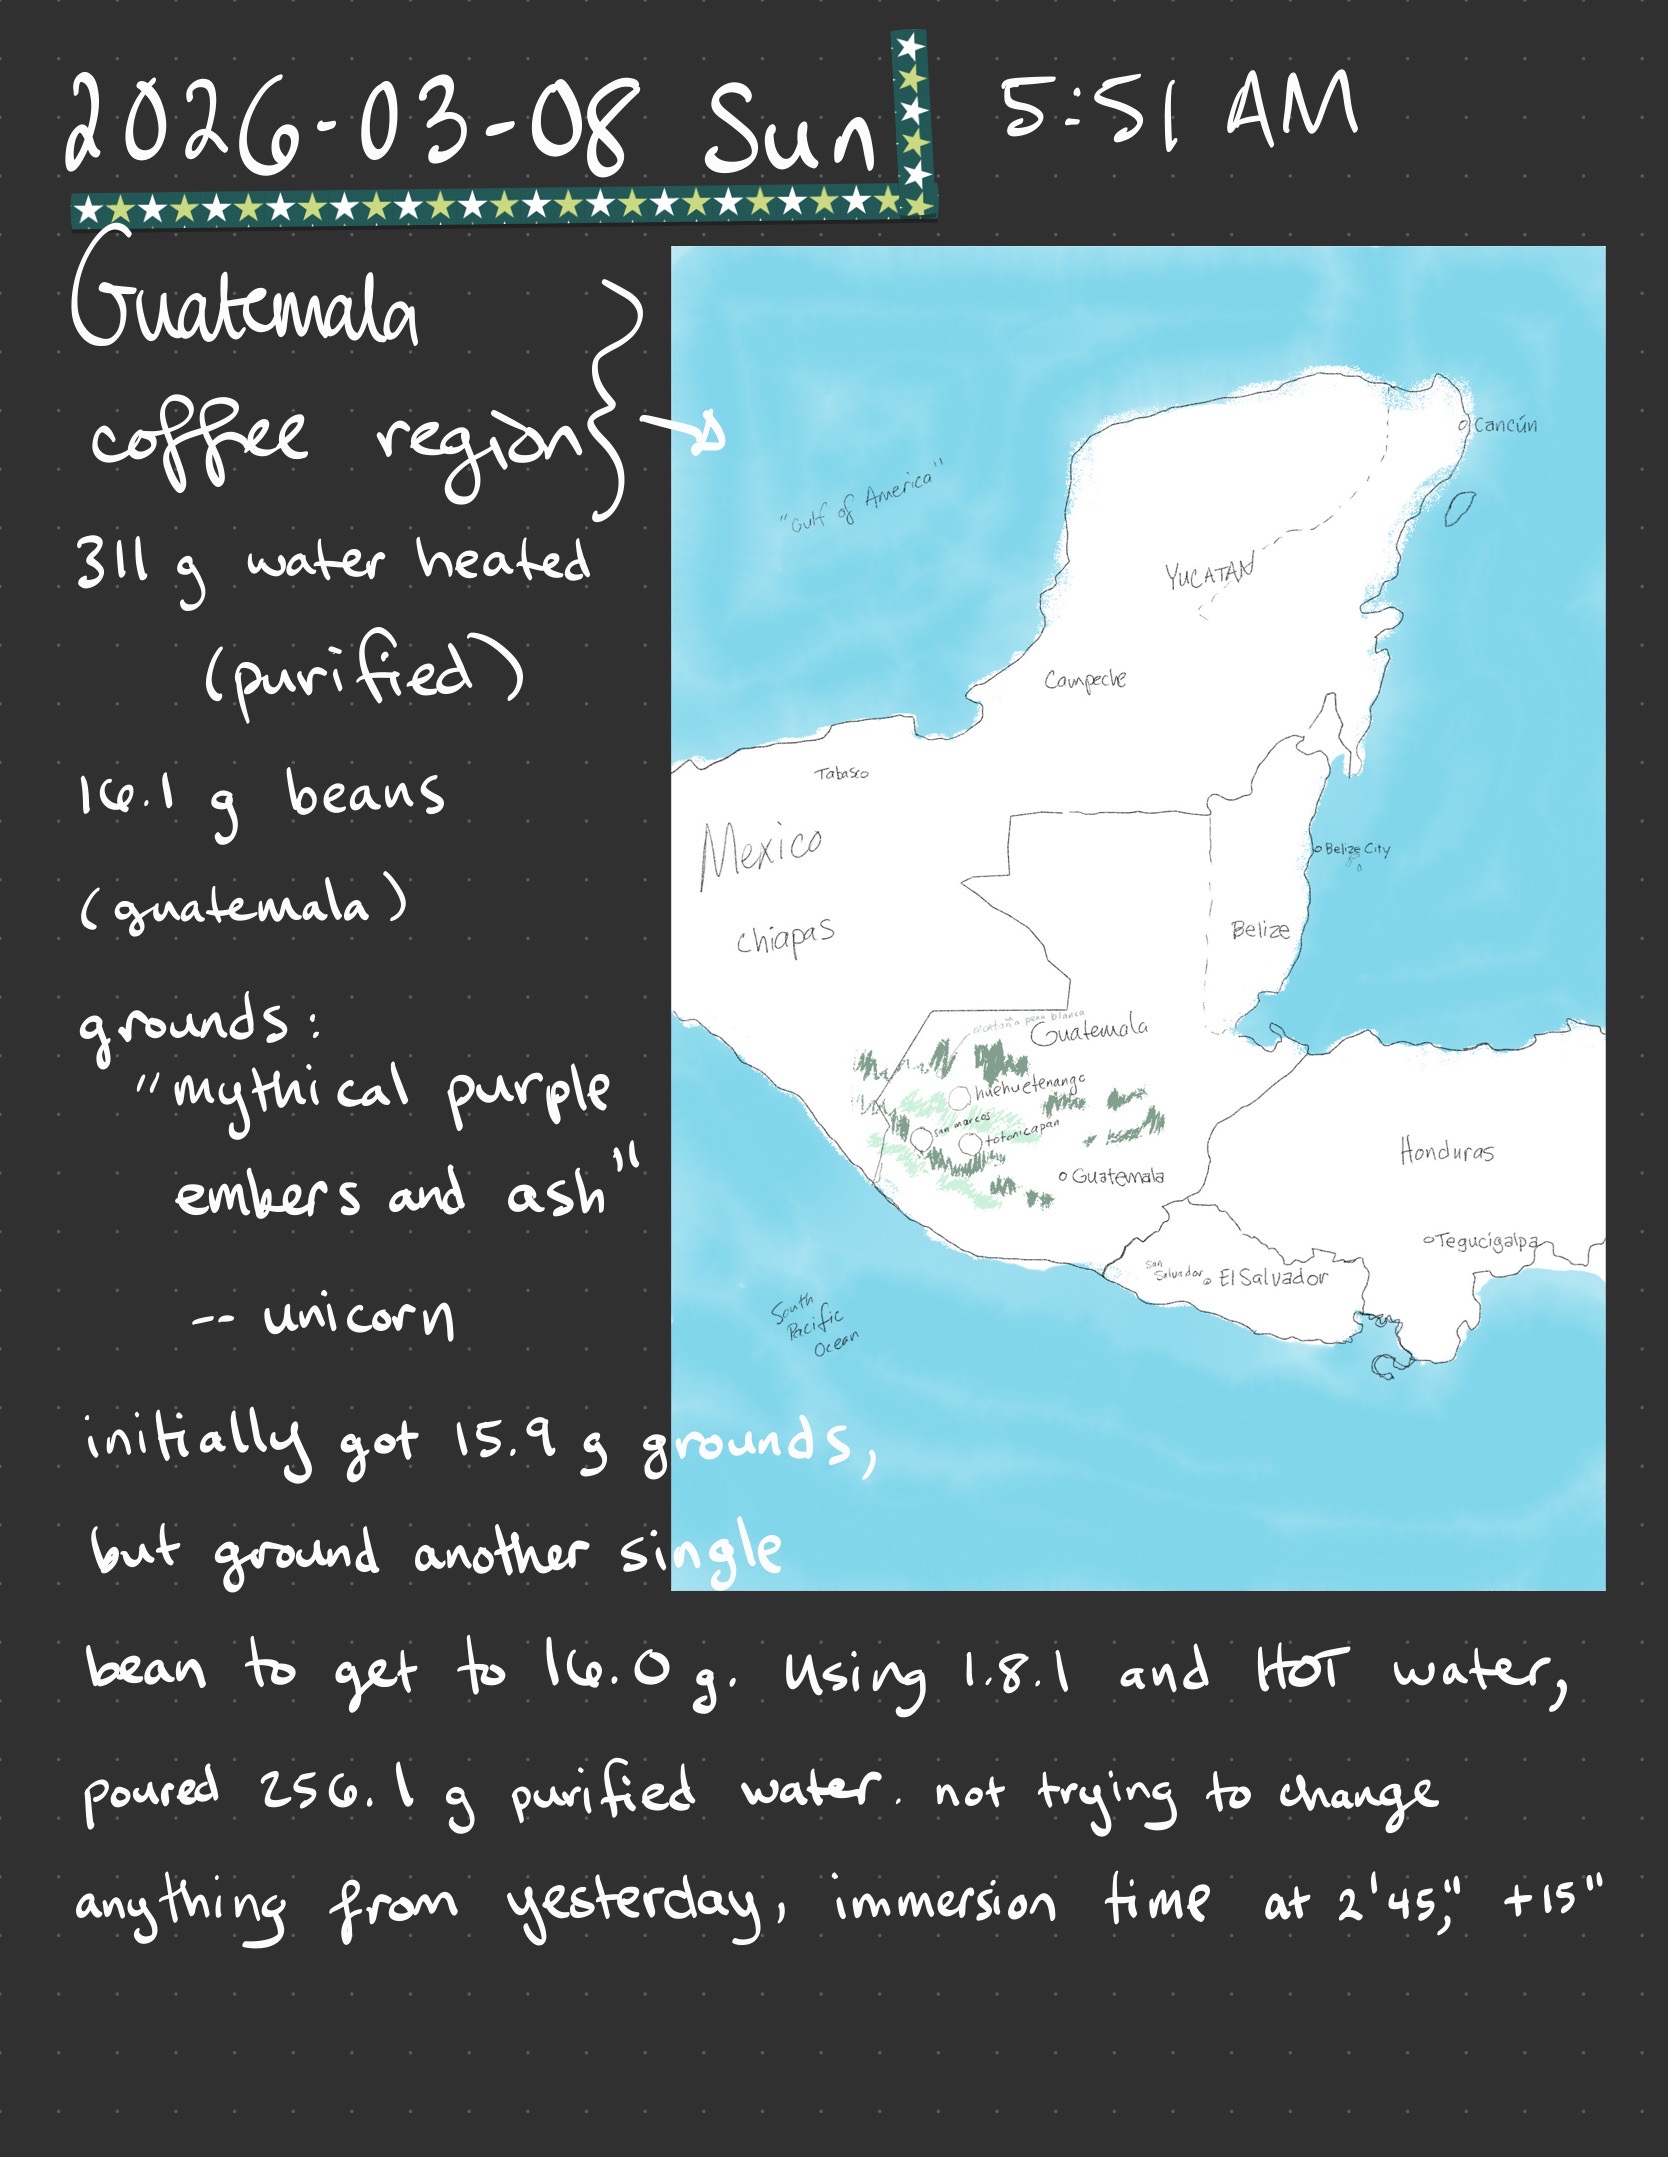 2026-03-08 Sun
5:51 AM
Guatemala
coffee region
311 g water heated
(purified)
16.1 g beans
(guatemala)
grounds:
"mythical purple
embers and ash"
-- unicorn
initially got 15.9 g grounds,
but ground another single
bean to get to 16.0 g. Using 1.8.1 and HOT water,
poured 256.1 g purified water. not trying to change
anything from yesterday, immersion time at 2'45," +15"
Cancún
"Gulf of America"
YUCATAN
Campeche
Tabasco
Mexico
Chiapas
Belize City
Belize
montaña pena blanca
Guatemala
huehuetenango
san marcos
totonicapan
Guatemala
Honduras
Tegucigalpa
San
Salvador
El Salvador
South
Pacific
Ocean